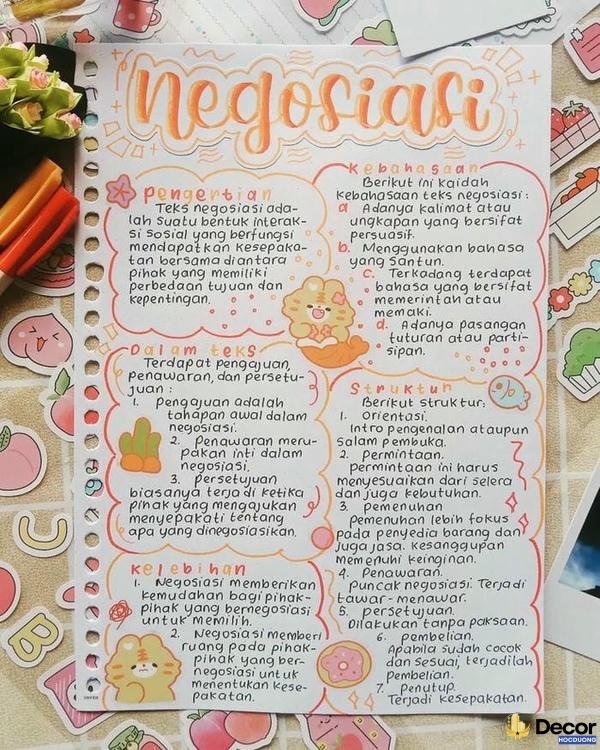 negosiasi
Pengertian
Teks negosiasi ada-
lah suatu bentuk interak-
si sosial yang berfungsi
mendapatkan kesepaka-
tan bersama diantara
pihak yang memiliki
perbedaan tujuan dan
kepentingan.
Dalam teks
Terdapat pengajuan,
penawaran, dan persetu-
juan :
1. Pengajuan adalah
tahapan awal dalam
negosiasi.
2. Penawaran meru-
pakan inti dalam
negosiasi.
3. Persetujuan
biasanya terjadi ketika
pihak yang mengajukan
menyepakati tentang
apa yang dinegosiasikan.
Kelebihan
1. Negosiasi memberikan
kemudahan bagi pihak-
pihak yang bernegosiasi
untuk memilih.
2. Negosiasi memberi
ruang pada pihak-
pihak yang ber-
negosiasi untuk
menentukan kese-
pakatan.
Kebahasaan
Berikut ini kaidah
kebahasaan teks negosiasi :
a. Adanya kalimat atau
ungkapan yang bersifat
persuasif.
b. Menggunakan bahasa
yang santun.
c. Terkadang terdapat
bahasa yang bersifat
memerintah atau
memaki.
d. Adanya pasangan
tuturan atau parti-
sipan.
Struktur
Berikut struktur:
1. Orientasi.
Intro pengenalan ataupun
salam pembuka.
2. Permintaan.
Permintaan ini harus
menyesuaikan dari selera
dan juga kebutuhan.
3. Pemenuhan
Pemenuhan lebih fokus
pada penyedia barang dan
juga jasa. Kesanggupan
memenuhi keinginan.
4. Penawaran.
Puncak negosiasi. Terjadi
tawar-menawar.
5. Persetujuan.
Dilakukan tanpa paksaan.
6. Pembelian.
Apabila sudah cocok
dan sesuai, terjadilah
Pembelian.
7. Penutup.
Terjadi kesepakatan.
C
B
Decor
HOCDUONG